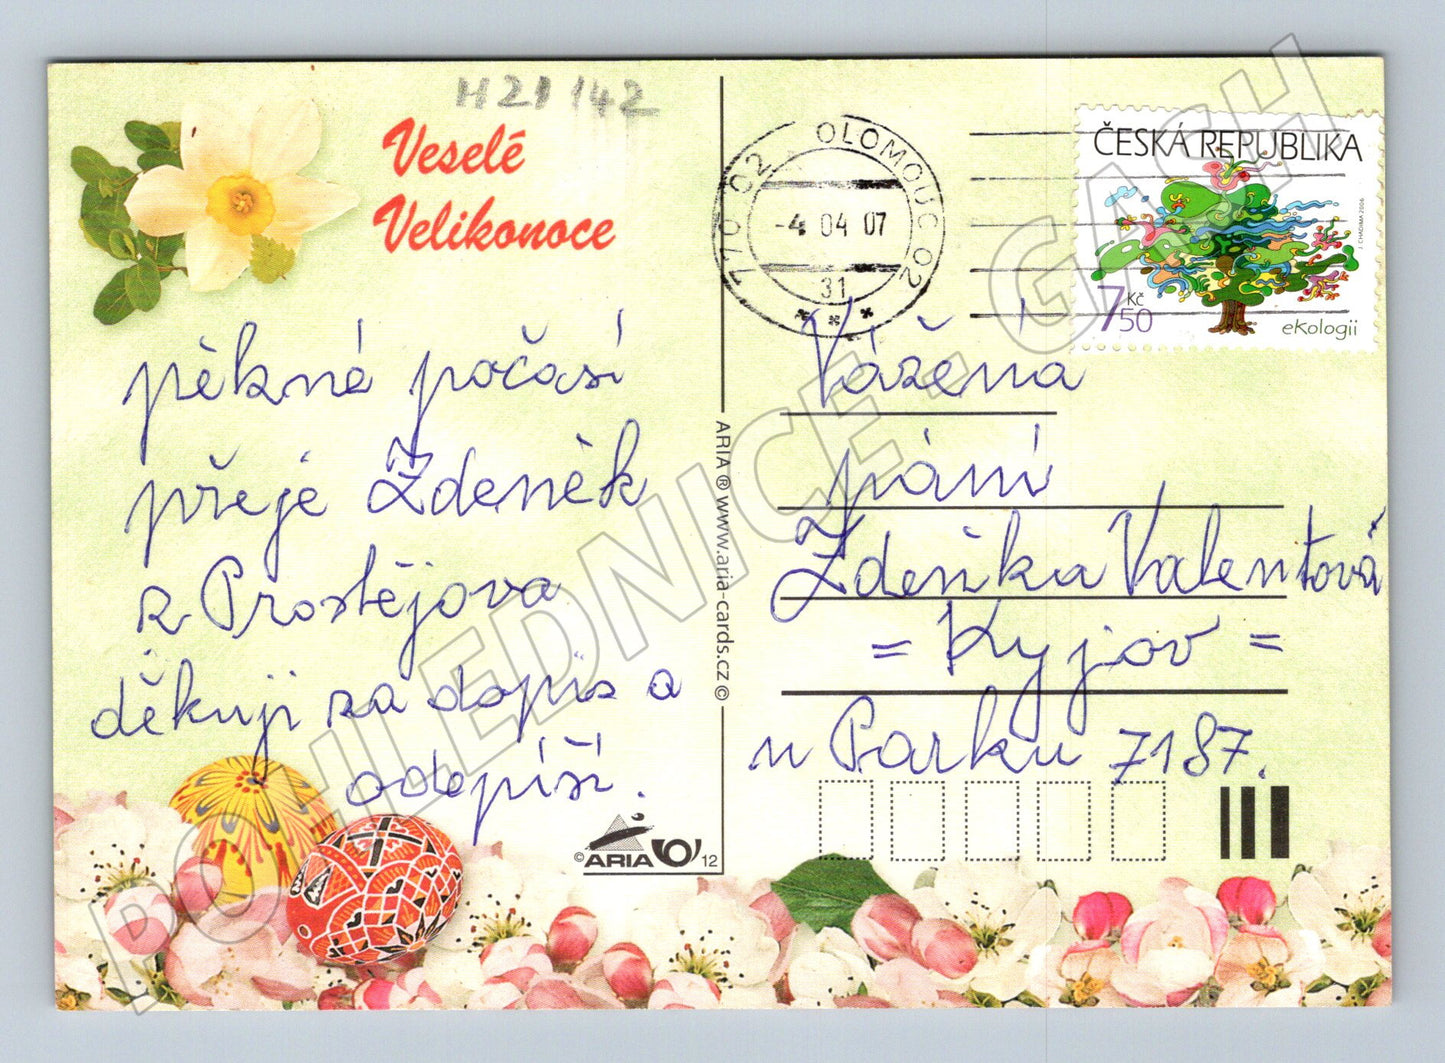 H21 142
Veselé
Velikonoce
pěkné počasí
přeje Zdeněk
z Prostějova
děkuji za dopis a
odepíši.
© ARIA 12
ARIA ® www.aria-cards.cz ©
771 02 OLOMOUC 02
-4 04 07
31
ČESKÁ REPUBLIKA
J. CHADIMA 2006
7 Kč
50
ekologii
Vážená
pání
Zdenka Valentová
= Kyjov =
u Parku 7187.
POHLEDNICE - GASH